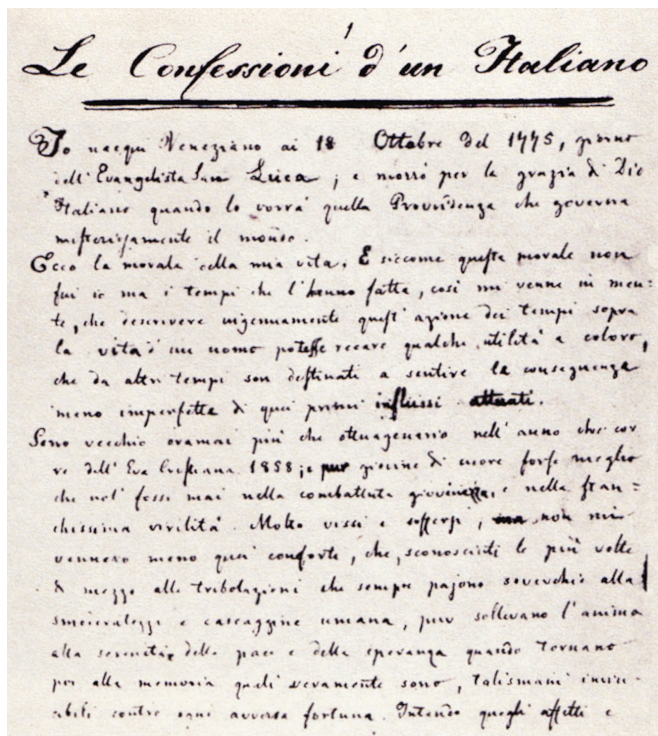 1
Le Confessioni d'un Italiano
Io nacqui Veneziano ai 18 Ottobre del 1775, giorno
dell'Evangelista San Luca; e morrò per la grazia di Dio
Italiano quando lo vorrà quella Provvidenza che governa
misteriosamente il mondo.
Ecco la morale della mia vita. E siccome questa morale non
fui io ma i tempi che l'hanno fatta, così mi venne in men=
te, che descrivere ingenuamente quest'azione dei tempi sopra
la vita d'un uomo potesse recare qualche utilità a coloro,
che da altri tempi son destinati a sentire le conseguenze
meno imperfette di quei primi influssi attuati.
Sono vecchio oramai più che ottuagenario nell'anno che cor
re dell'Era Cristiana 1858; e pur giovine di cuore forse meglio
che nol fossi mai nella combattuta giovinezza, e nella stan=
chissima virilità. Molto vissi e soffersi; ma non mi
vennero meno quei conforti, che, sconosciuti le più volte
di mezzo alle tribolazioni che sempre pajono soverchie alla
smoderatezza e cascaggine umana, pur sollevano l'anima
alla serenità della pace e della speranza quando tornano
poi alla memoria quali veramente sono, talismani invin-
cibili contro ogni avversa fortuna. Intendo quegli affetti e